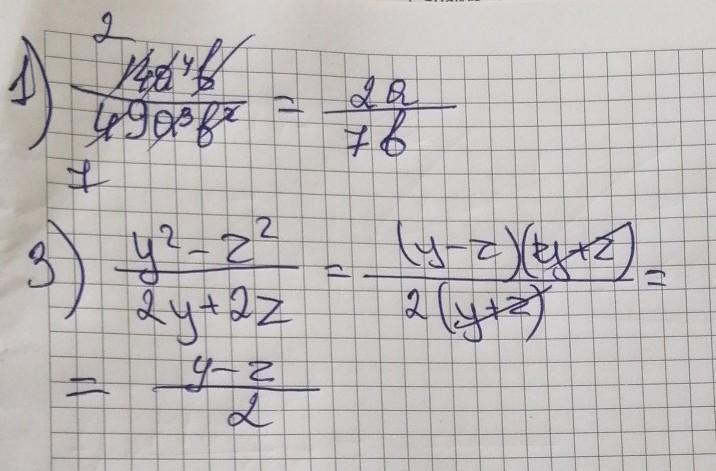 1) 14a⁴b / 49a³b² = 2a / 7b
2
7
3) y² - z² / 2y + 2z = (y - z)(y + z) / 2(y + z) =
= y - z / 2